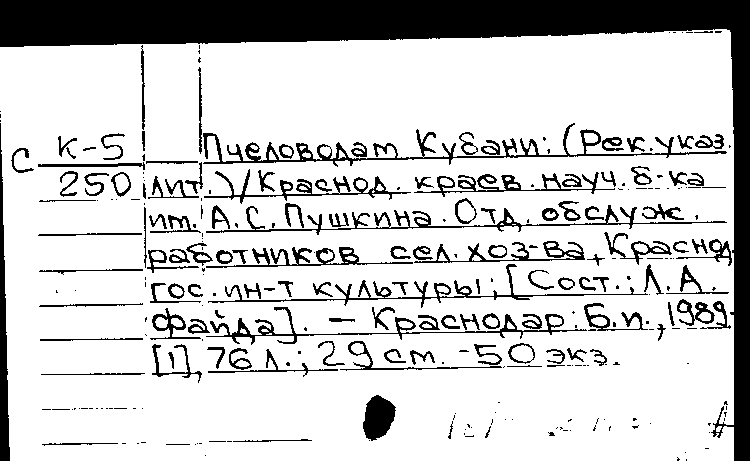 С К-5 Пчеловодам Кубани: (Рек. указ.
250 лит.)/Краснод. краев. науч. б-ка
им. А.С. Пушкина. Отд. обслуж.
работников сел. хоз-ва, Краснод.
гос. ин-т культуры; [Сост.: Л.А.
Файда]. — Краснодар: Б.и., 1989-
[1], 76 л.; 29 см. -50 экз.